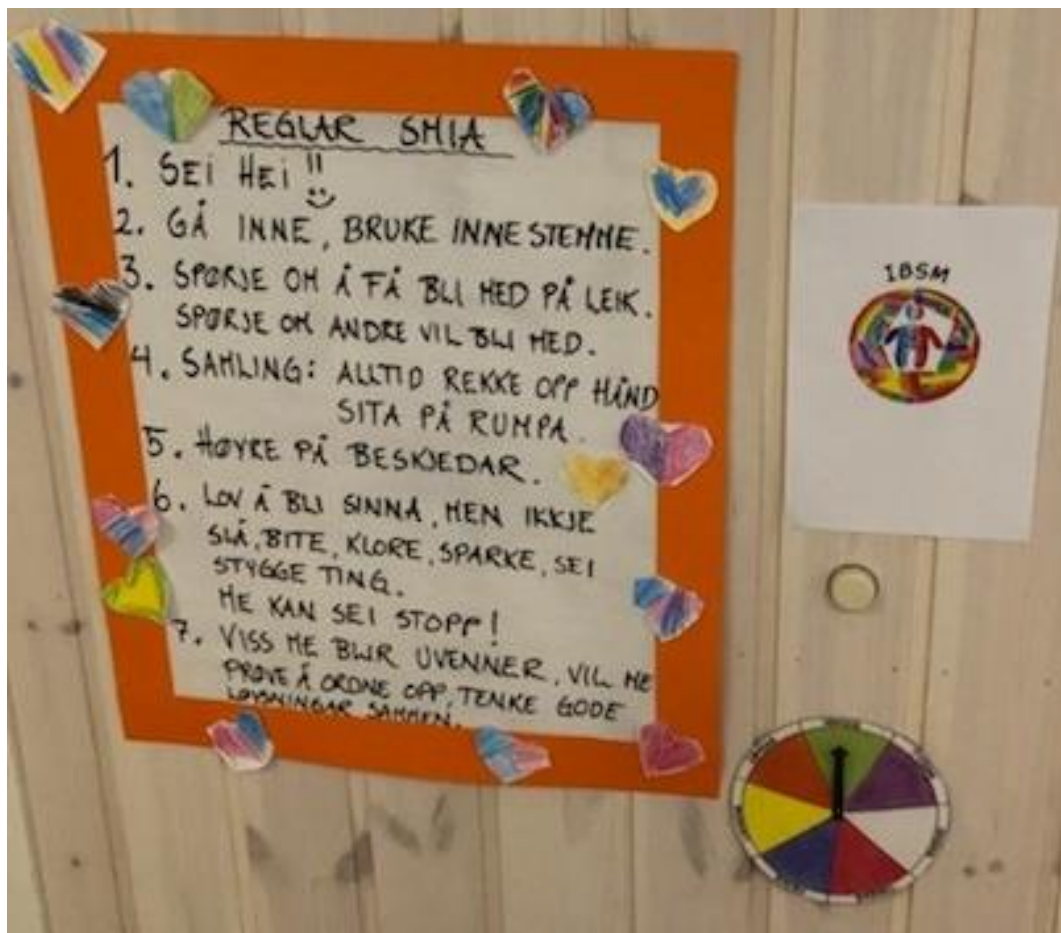 REGLAR SMIA
1. SEI HEI !!
2. GÅ INNE, BRUKE INNESTEMME.
3. SPØRJE OM Å FÅ BLI MED PÅ LEIK.
SPØRJE OM ANDRE VIL BLI MED.
4. SAMLING: ALLTID REKKE OPP HÅND
SITA PÅ RUMPA.
5. HØYRE PÅ BESKJEDAR.
6. LOV Å BLI SINNA, MEN IKKJE
SLÅ, BITE, KLORE, SPARKE, SEI
STYGGE TING.
ME KAN SEI STOPP!
7. VISS ME BLIR UVENNER, VIL ME
PRØVE Å ORDNE OPP, TENKE GODE
LØYSNINGAR SAMMEN.
IBSM